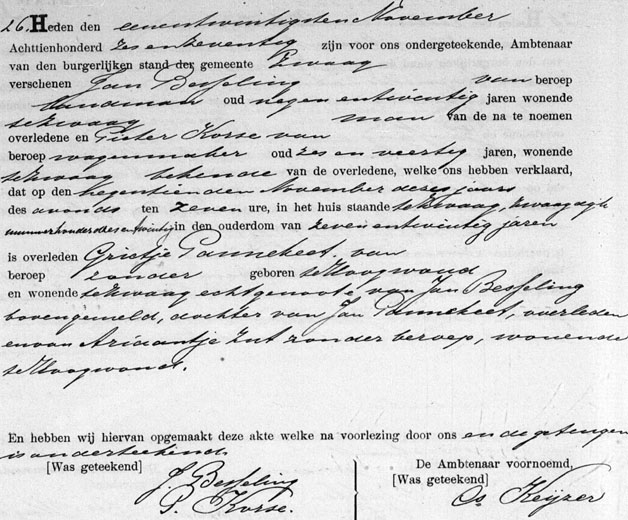 26. Heden den eenentwintigsten November
Achttienhonderd zes en zeventig zijn voor ons ondergeteekende, Ambtenaar
van den burgerlijken stand der gemeente Zwaag
verschenen Jan Besseling van beroep
landman oud negen en twintig jaren wonende
te Zwaag man van de na te noemen
overledene en Pieter Korse van
beroep wagenmaker oud zes en veertig jaren, wonende
te Zwaag bekende van de overledene, welke ons hebben verklaard,
dat op den negentienden November dezes jaars
des avonds ten zeven ure, in het huis staande te Zwaag, Zwaagdijk
nummer honderd zes en twintig in den ouderdom van zeven en twintig jaren
is overleden Grietje Pannekeet. van
beroep zonder geboren te Hoogwoud
en wonende te Zwaag echtgenoote van Jan Besseling
bovengemeld, dochter van Jan Pannekeet, overleden
en van Ariaantje Zut zonder beroep, wonende
te Hoogwoud.
En hebben wij hiervan opgemaakt deze akte welke na voorlezing door ons en de getuigen
is onderteekend.
[Was geteekend] De Ambtenaar voornoemd,
J. Besseling [Was geteekend]
P. Korse. Cs. Keijzer